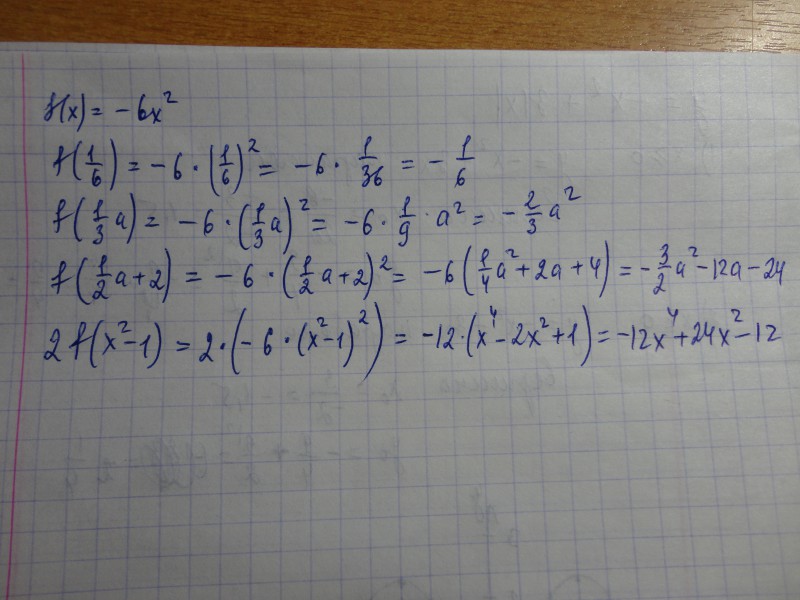 f(x) = -6x²
f(1/6) = -6 · (1/6)² = -6 · 1/36 = -1/6
f(1/3 a) = -6 · (1/3 a)² = -6 · 1/9 · a² = -2/3 a²
f(1/2 a+2) = -6 · (1/2 a+2)² = -6(1/4 a² + 2a + 4) = -3/2 a² - 12a - 24
2f(x²-1) = 2·(-6·(x²-1)²) = -12·(x⁴ - 2x² + 1) = -12x⁴ + 24x² - 12